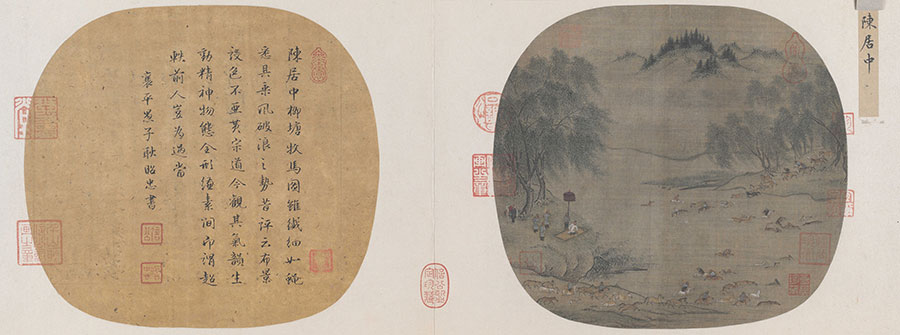 陳居中
陳居中柳塘牧馬圖雖纖細如蠅
悉具乘風破浪之勢昔評云布景
設色不亞黃宗道今觀其氣韻生
動精神物態全形縑素間即謂超
軼前人豈為過當
襄平子耿昭忠書